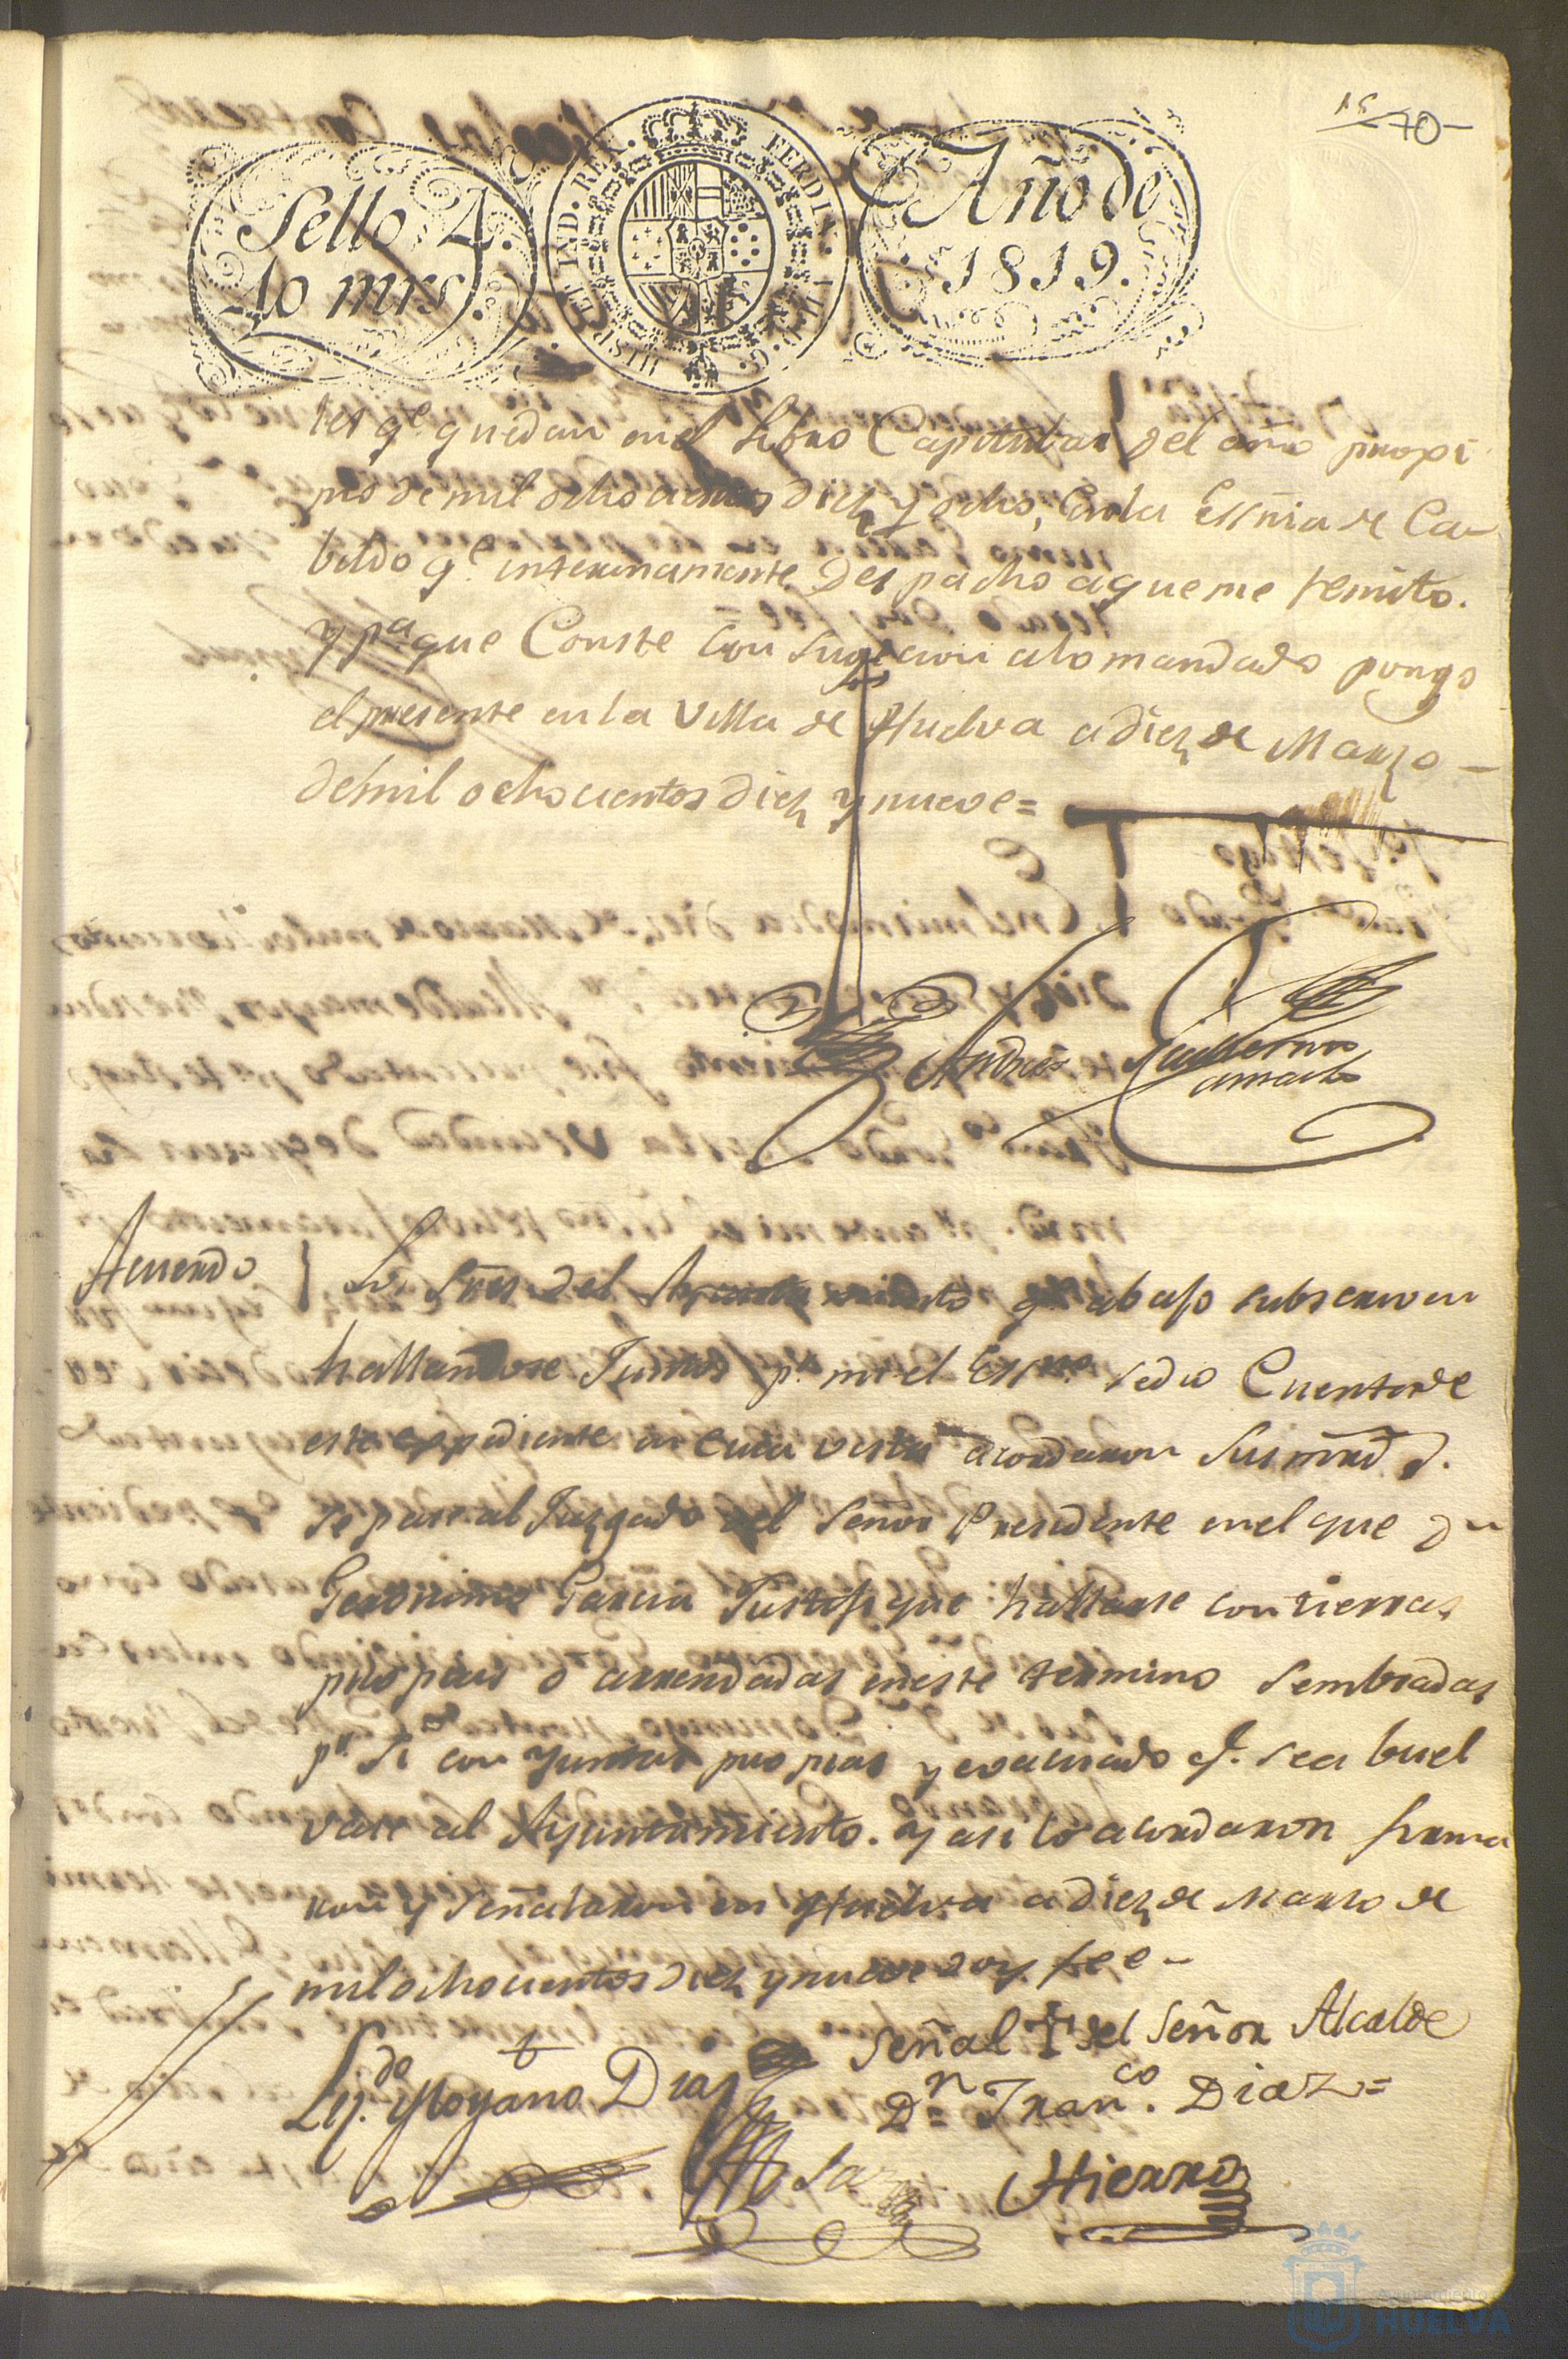 15
70
Sello 4.º
40 mrs.
HISP. ET IND. REX. FERDIN. VII. D. G.
Año de
1819.
tes q.e quedan en el Libro Capitular del año proxi
mo de mil ochocientos diez y ocho, en la Essnia de Ca-
bildo q.e interinamente Despacho aque me remito.
y p.a que Conste con sugecion alo mandado pongo
el presente en la Villa de Huelva a diez de Marzo -
de mil ochocientos diez y nueve =
Andres Guillermo
Camacho
Acuerdo
Los Sres. del Ayuntamiento q.e abajo subscriven
hallandose Juntos p.r mi el Essno. se dio Cuenta de
este expediente en cuia vista acordaron Sus mrds.
se pase al Juzgado del Señor Presidente en el que Dn
Geronimo Garcia Justifique hallarse con tierras
propias o arrendadas en este termino sembradas
p.r Si con yuntas propias y evacuado q.e sea buel
vase al Ayuntamiento. Y asi lo acordaron firma
ron y señalaron en Huelva a diez de Marzo de
mil ochocientos diez y nueve doy fee -
Señal + del Señor Alcalde
Lizdo. Moyano Diaz
Dn = Franco. Diaz =
Hierro
Ayuntamiento
HUELVA